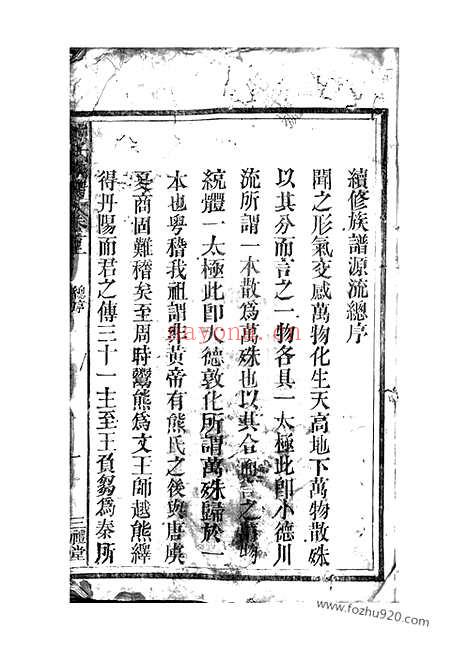 續修族譜源流總序
聞之形氣交感萬物化生天高地下萬物散殊
以其分而言之一物各具一太極此即小德川
流所謂一本散爲萬殊也以其合而言之萬物
統體一太極此即大德敦化所謂萬殊歸於一
本也粤稽我祖謂與黃帝有熊氏之後與唐虞
夏商固難稽矣至周時鬻熊爲文王師越熊繹
得丹陽而君之傳三十一主至王負芻爲秦所
總序
三禮堂
nayona.cn
www.fozhu920.com